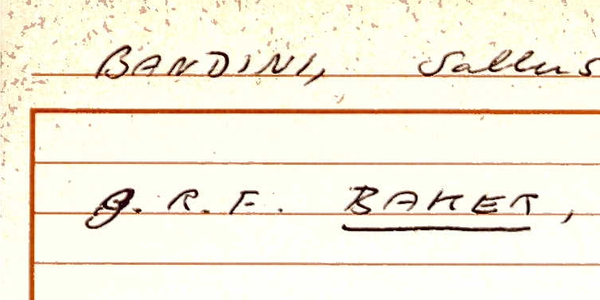 BANDINI, Sallus
G. R. F. BAKER,